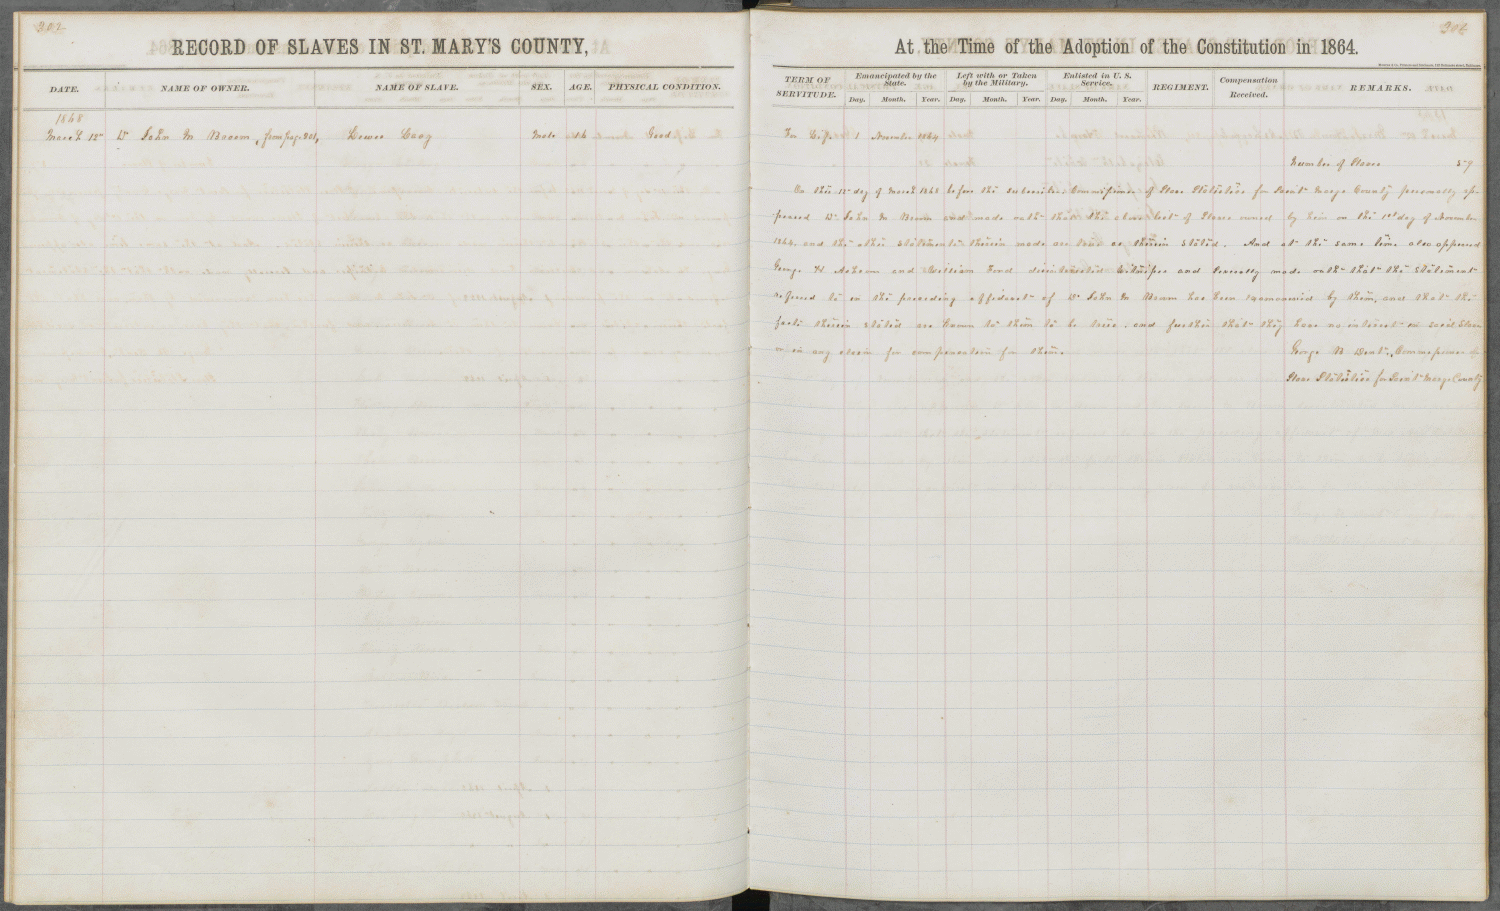 302
RECORD OF SLAVES IN ST. MARY'S COUNTY,
DATE. NAME OF OWNER. NAME OF SLAVE. SEX. AGE. PHYSICAL CONDITION.
1868
March 12th Dr John M Broom, from page 301, Male Good
302
At the Time of the Adoption of the Constitution in 1864.
TERM OF SERVITUDE. Emancipated by the State. Left with or Taken by the Military. Enlisted in U. S. Service. REGIMENT. Compensation Received. REMARKS.
Day. Month. Year. Day. Month. Year. Day. Month. Year.
For Life 1 November 1864
Number of Slaves 59
On this 12th day of March 1868 before the subscriber Commissioner of Slave Statistics for Saint Marys County personally ap-
peared Dr John M Broom and made oath that the above list of Slaves owned by him on the 1st day of November
1864, and the other statements therein made are true as therein stated. And at the same time also appeared
George H and William Ford disinterested witnesses and severally made oath that the statement
refered to in the preceding affidavit of Dr John M Broom has been examined by them, and that the
facts therein stated are known to them to be true, and further that they have no interest in said Slaves
or in any claim for compensation for them.
George B Dent, Commissioner of
Slave Statistics for Saint Marys County